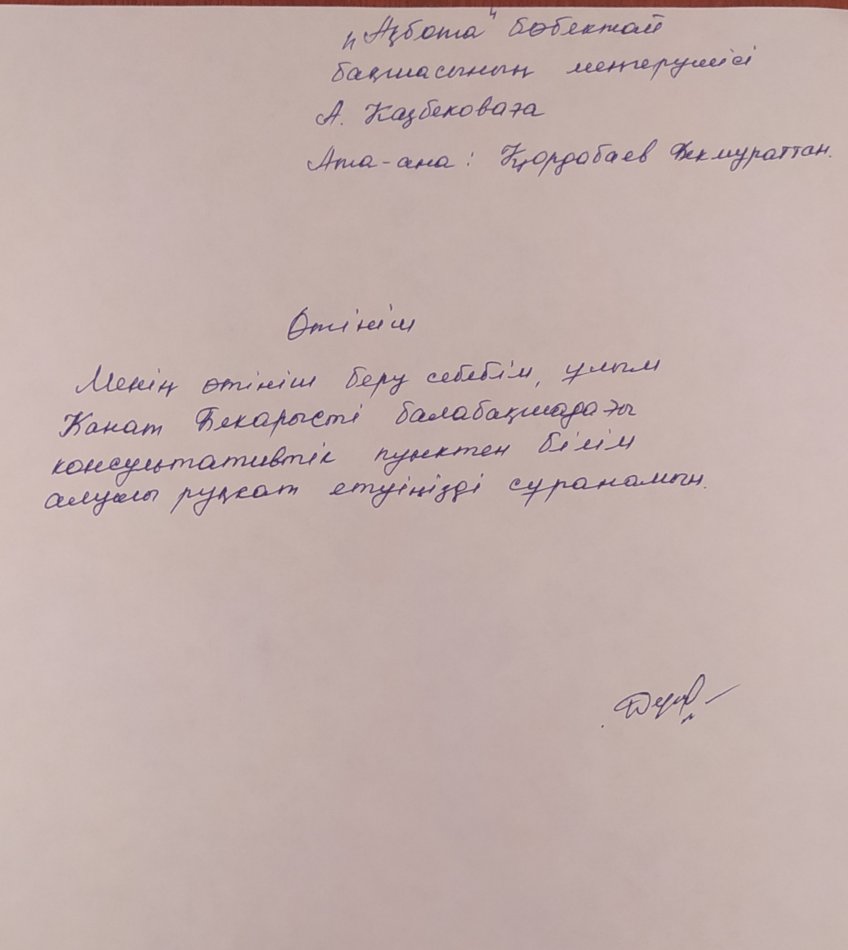 "Ақбота" бөбекжай
бақшасының меңгерушісі
А. Казбековаға
Ата-ана: Қордабаев Бекмураттан.
Өтініш
Менің өтініш беру себебім, ұлым
Канат Бекарысті балабақшадағы
консультативтік пунктен білім
алуын рұқсат етуіңізді сұранамын.